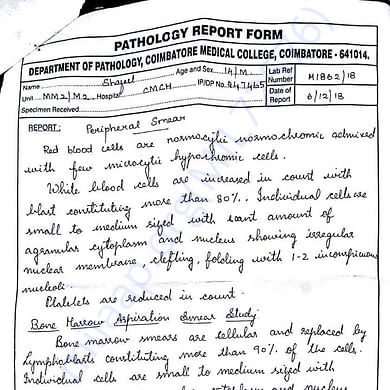 PATHOLOGY REPORT FORM
DEPARTMENT OF PATHOLOGY, COIMBATORE MEDICAL COLLEGE, COIMBATORE - 641014.
Name Age and Sex 14/M. Lab Ref Number H1862/18
Unit MM2/M2 Hospital CMCH IP/OP No. 847465 Date of Report 6/12/18
Specimen Received
REPORT: Peripheral Smear
Red blood cells are normocytic normochromic admixed
with few microcytic hypochromic cells.
White blood cells are increased in count with
blast constituting more than 80%. Individual cells are
small to medium sized with scant amount of
agranular cytoplasm and nucleus showing irregular
nuclear membrane, clefting, folding with 1-2 inconspicuous
nucleoli.
Platelets are reduced in count.
Bone Marrow Aspiration Smear Study:
Bone marrow smears are cellular and replaced by
Lymphoblasts constituting more than 90% of the cells.
Individual cells are small to medium sized with